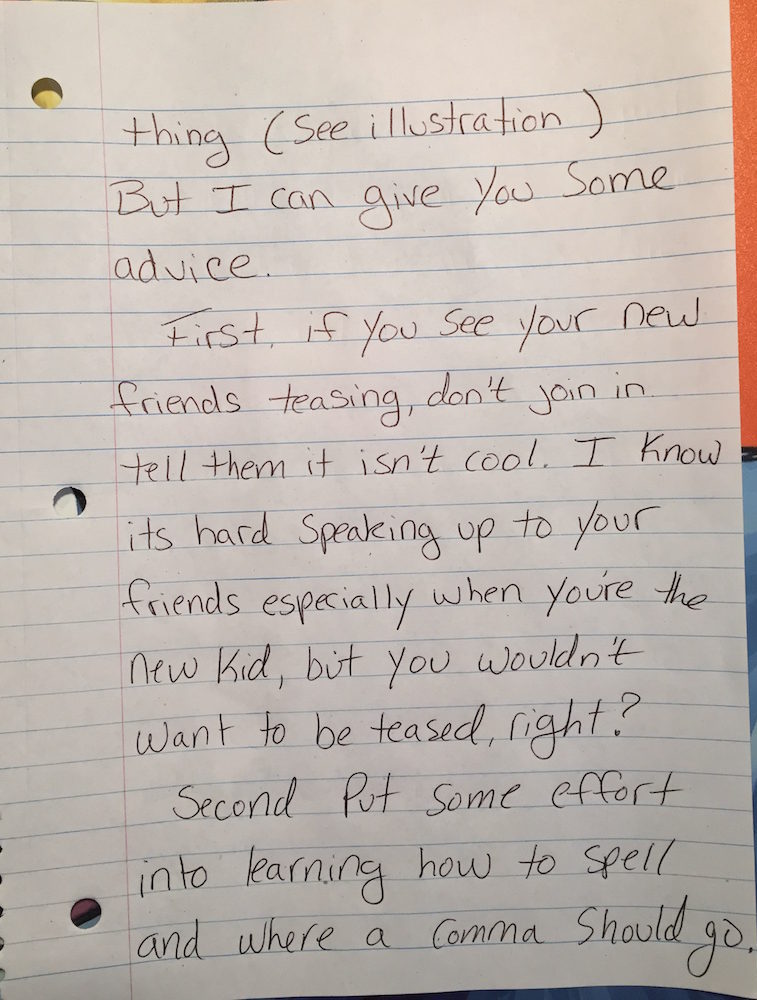 thing (See illustration)
But I can give you some
advice.
First, if you see your new
friends teasing, don't join in
tell them it isn't cool. I know
its hard speaking up to your
friends especially when you're the
new kid, but you wouldn't
want to be teased, right?
Second Put some effort
into learning how to spell
and where a comma should go.